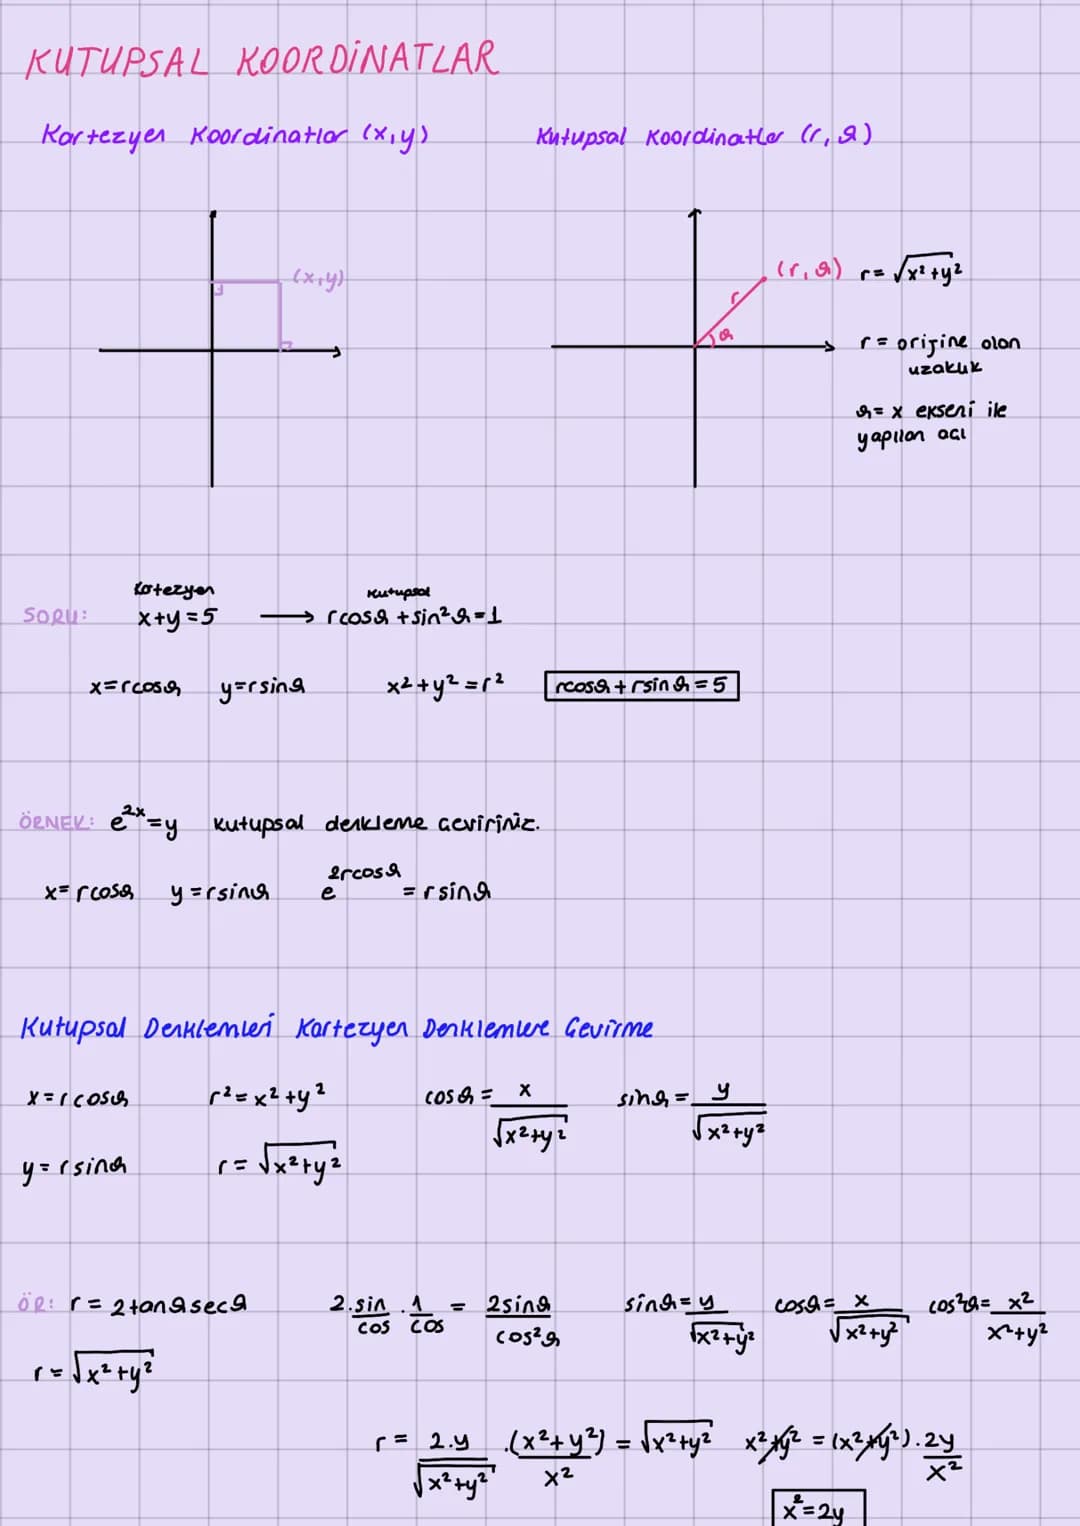 KUTUPSAL KOORDİNATLAR
Kartezyen Koordinatlar (x,y)
Kutupsal Koordinatlar (r, θ)
(x,y)
(r, θ)
r
θ
r = √x² + y²
r = orijine olan
uzaklık
θ = x ekseni ile
yapılan açı
Kartezyen
Kutupsal
SORU: x+y = 5 ⟶ rcosθ + sin²θ = 1
x = rcosθ y = rsinθ x² + y² = r² rcosθ + rsinθ = 5
ÖRNEK: e^2x = y kutupsal denkleme çeviriniz.
x = rcosθ y = rsinθ e^2rcosθ = rsinθ
Kutupsal Denklemleri Kartezyen Denklemlere Çevirme
x = rcosθ r² = x² + y² cosθ = x/√(x² + y²) sinθ = y/√(x² + y²)
y = rsinθ r = √(x² + y²)
ÖR: r = 2tanθsecθ 2.sin/cos . 1/cos = 2sinθ/cos²θ sinθ = y/√(x² + y²) cosθ = x/√(x² + y²) cos²θ = x²/(x² + y²)
r = √(x² + y²)
r = 2.y/√(x² + y²) . (x² + y²)/x² = √(x² + y²) x² + y² = (x² + y²) . 2y/x²
x² = 2y